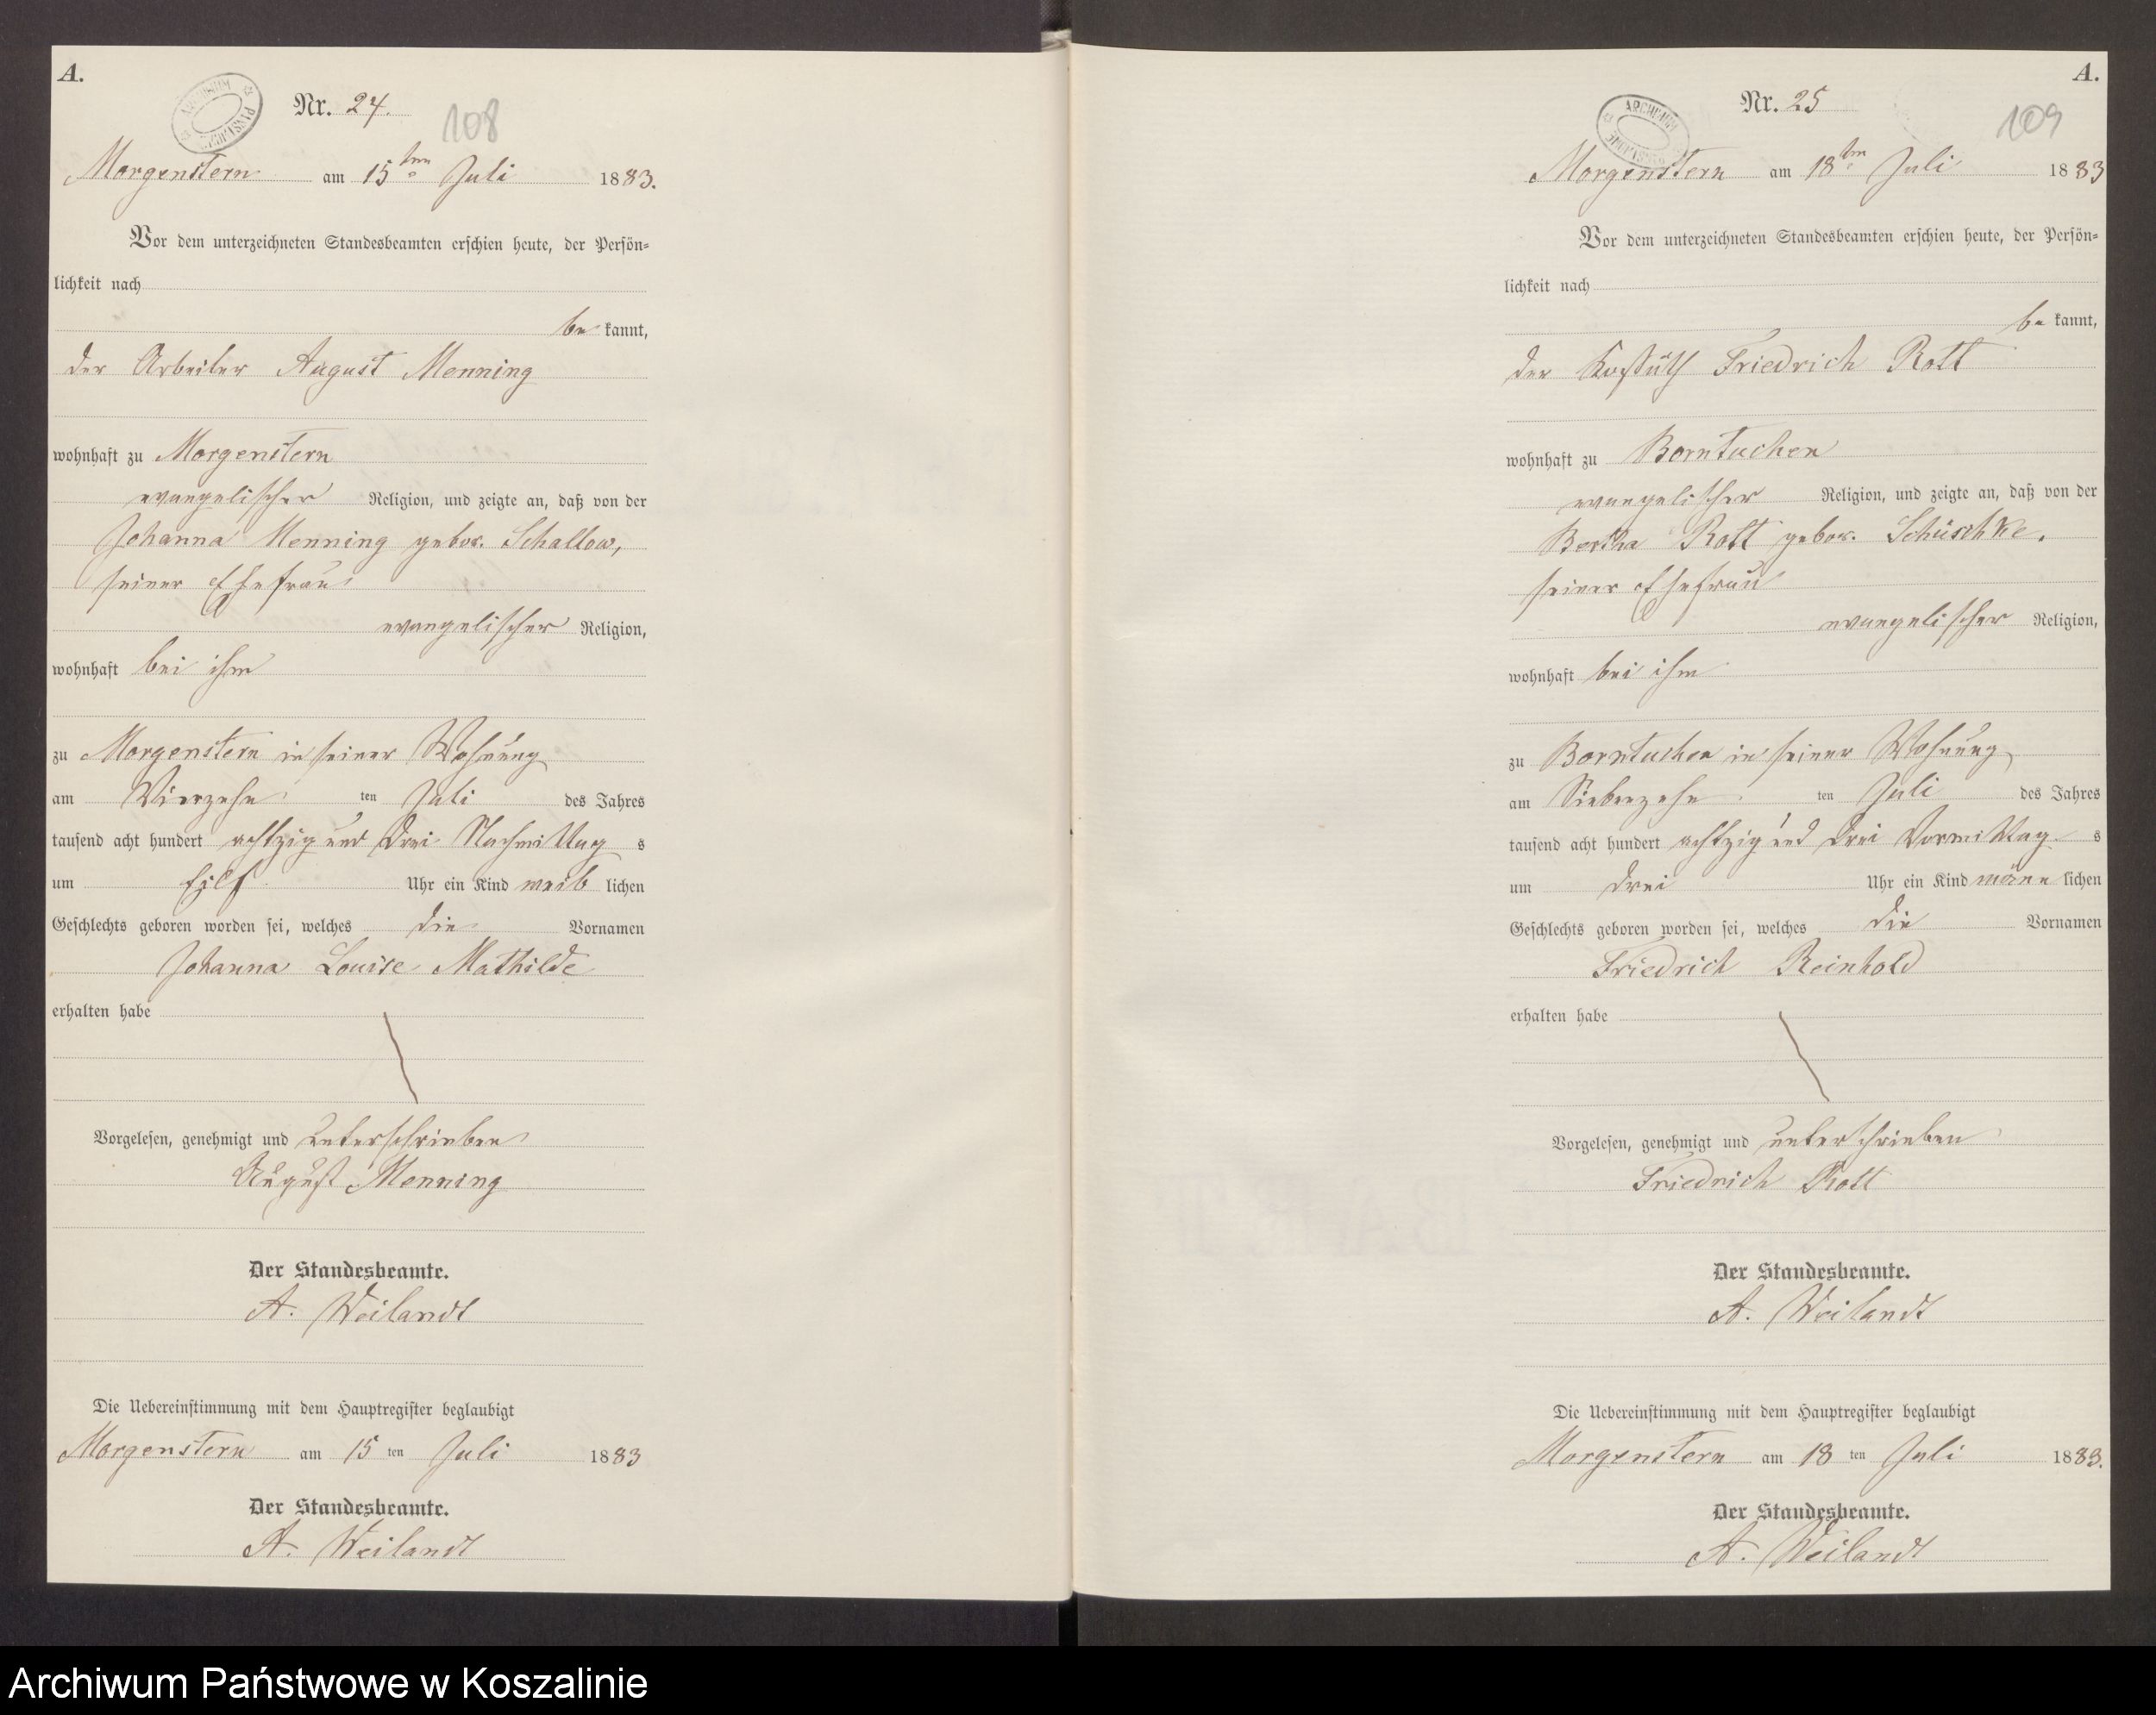 A.
Nr. 24.
108
Morgenstern am 15ten Juli 1883.
Vor dem unterzeichneten Standesbeamten erschien heute, der Persön-
lichkeit nach
be kannt,
der Arbeiter August Menning
wohnhaft zu Morgenstern
evangelischer Religion, und zeigte an, daß von der
Johanna Menning gebor. Schallow,
seiner Ehefrau
evangelischer Religion,
wohnhaft bei ihm
zu Morgenstern in seiner Wohnung
am Vierzehn ten Juli des Jahres
tausend acht hundert achtzig und drei Nachmittag s
um Eilf Uhr ein Kind weib lichen
Geschlechts geboren worden sei, welches die Vornamen
Johanna Louise Mathilde
erhalten habe
Vorgelesen, genehmigt und unterschrieben
August Menning
Der Standesbeamte.
A. Weilandt
Die Uebereinstimmung mit dem Hauptregister beglaubigt
Morgenstern am 15 ten Juli 1883
Der Standesbeamte.
A. Weilandt
A.
Nr. 25
109
Morgenstern am 18ten Juli 1883
Vor dem unterzeichneten Standesbeamten erschien heute, der Persön-
lichkeit nach
be kannt,
der Friedrich Rott
wohnhaft zu Borntuchen
evangelischer Religion, und zeigte an, daß von der
Bertha Rott gebor. Schüschke,
seiner Ehefrau
evangelischer Religion,
wohnhaft bei ihm
zu Borntuchen in seiner Wohnung
am Siebenzehn ten Juli des Jahres
tausend acht hundert achtzig und drei Vormittag s
um drei Uhr ein Kind männ lichen
Geschlechts geboren worden sei, welches die Vornamen
Friedrich Reinhold
erhalten habe
Vorgelesen, genehmigt und unterschrieben
Friedrich Rott
Der Standesbeamte.
A. Weilandt
Die Uebereinstimmung mit dem Hauptregister beglaubigt
Morgenstern am 18 ten Juli 1883.
Der Standesbeamte.
A. Weilandt
Archiwum Państwowe w Koszalinie